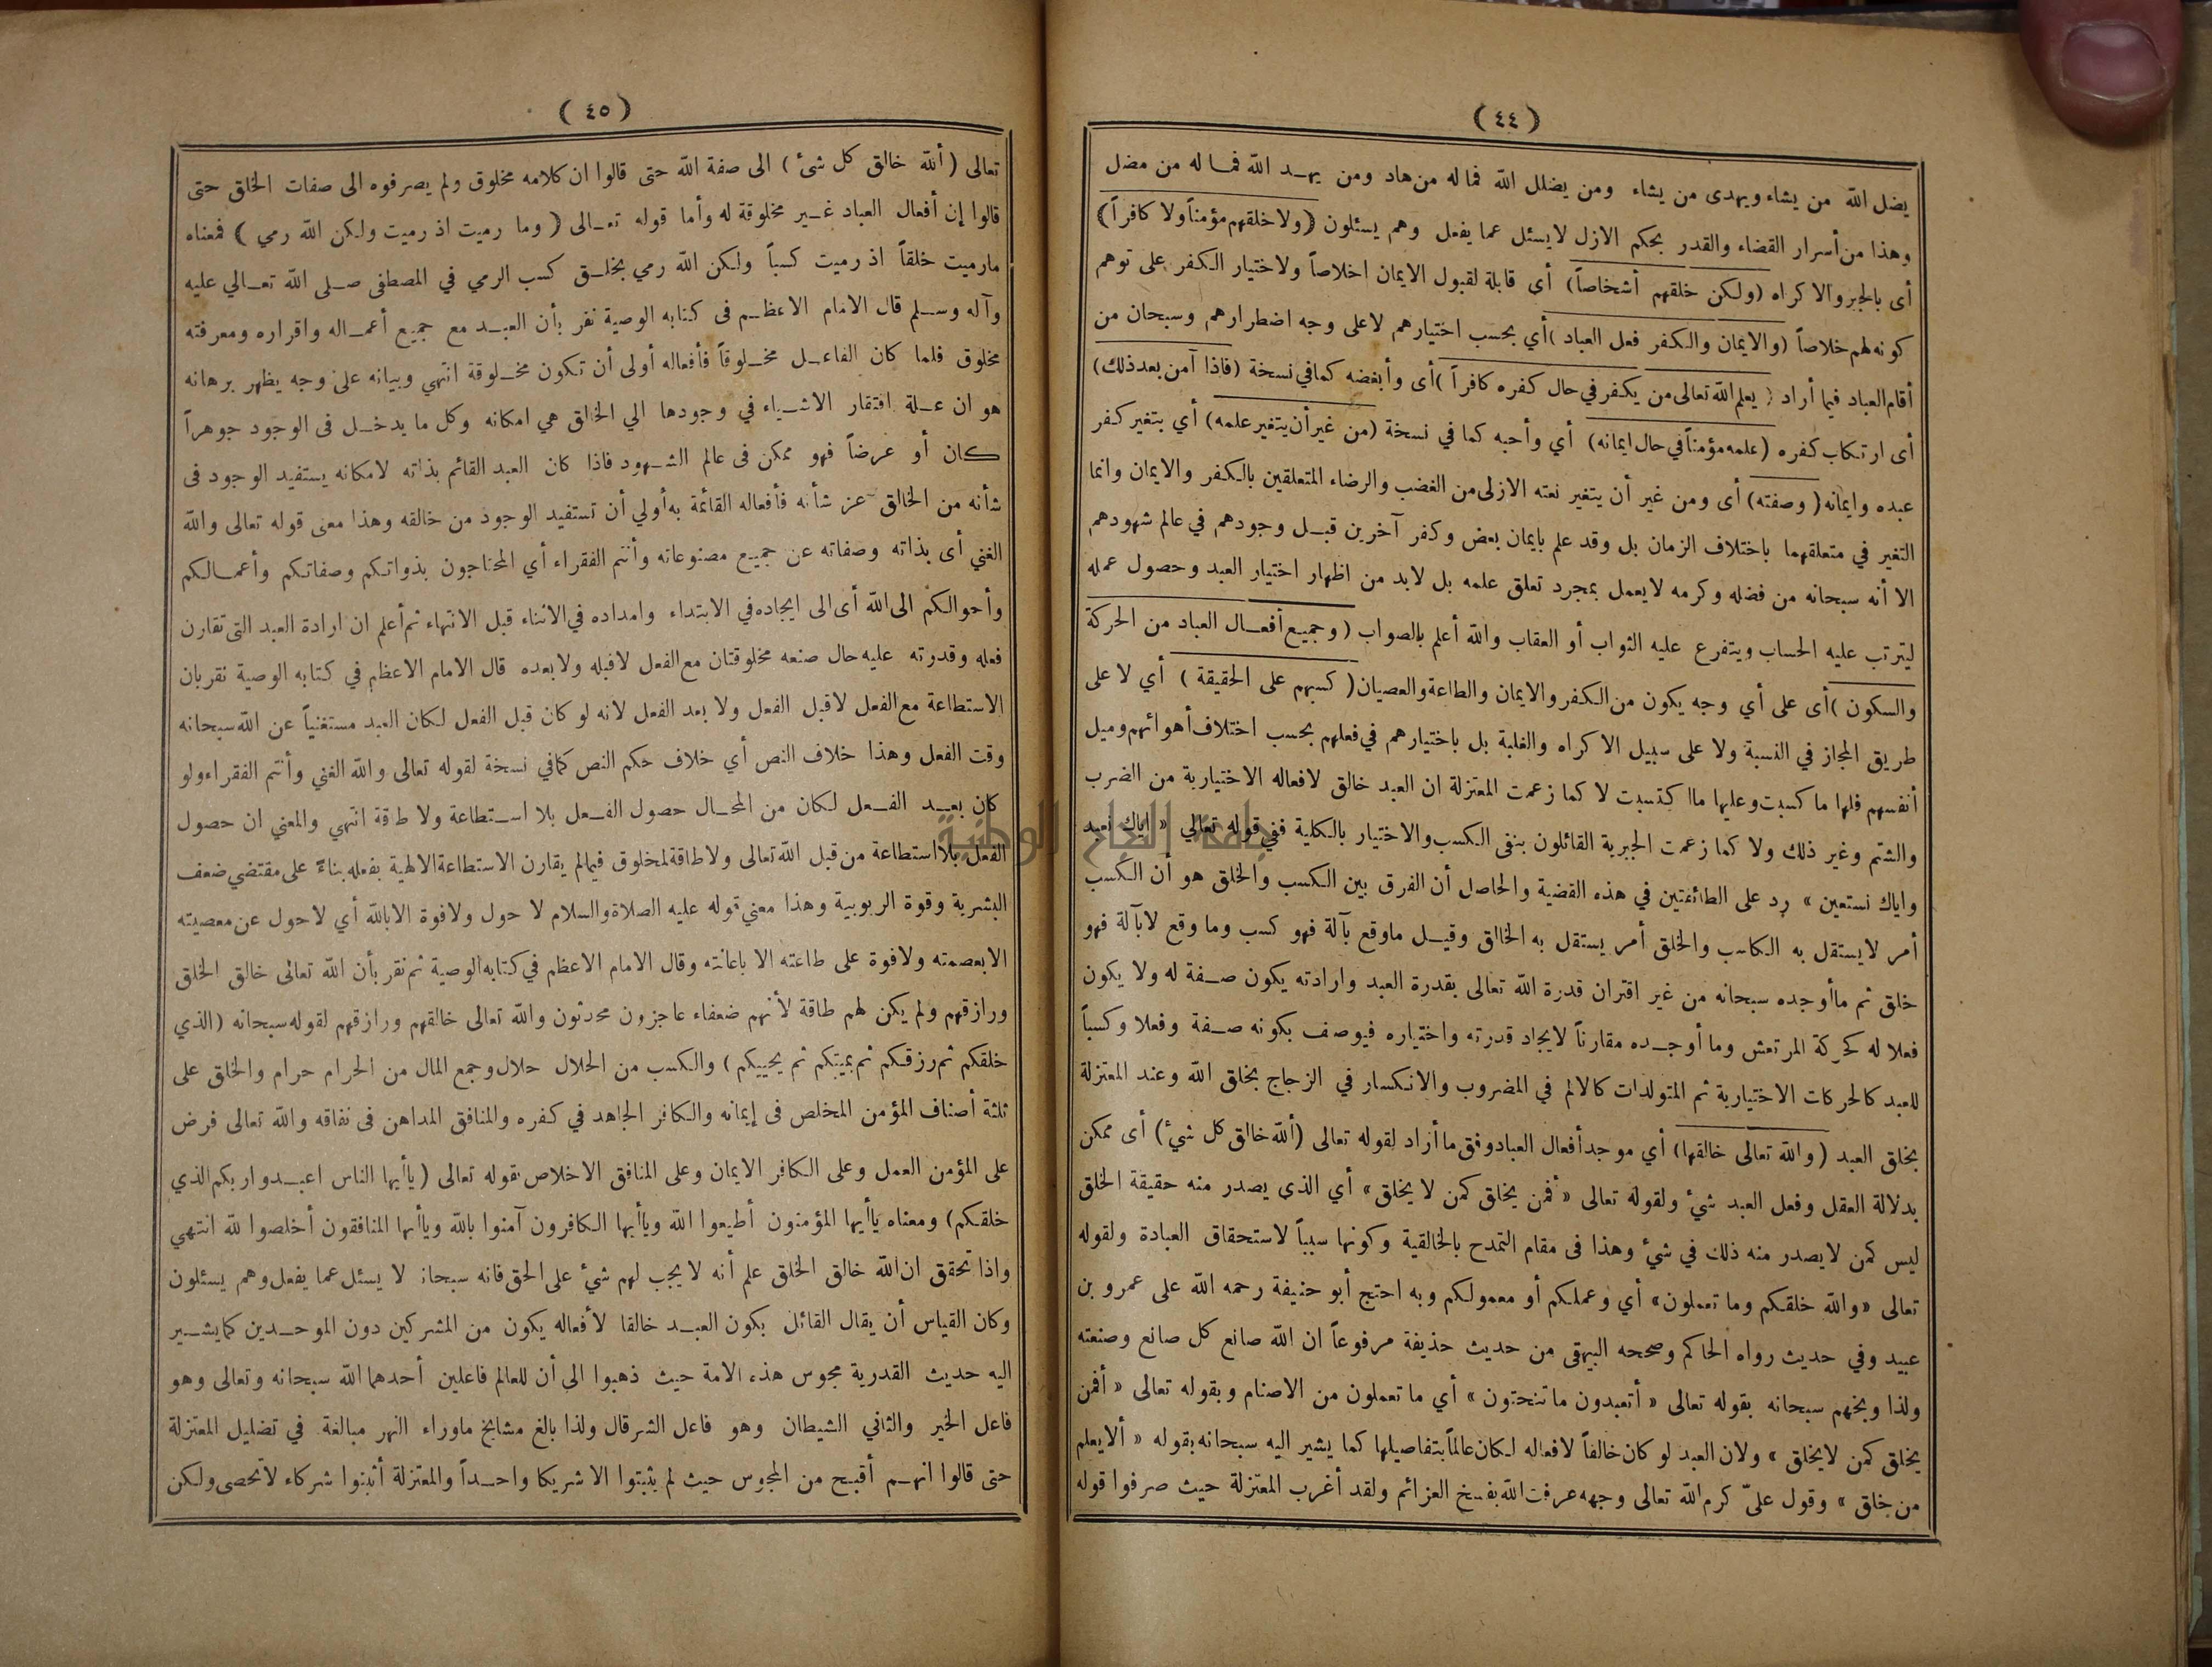 (٤٤)
يضل الله من يشاء ويهدى من يشاء ومن يضلل الله فماله من هاد ومن يهد الله فماله من مضل
وهذا من أسرار القضاء والقدر بحكم الازل لا يسئل عما يفعل وهم يسئلون (ولا خلقهم مؤمناً ولا كافراً)
أى بالجبر والاكراه (ولكن خلقهم أشخاصاً) أى قابلة لقبول الايمان اخلاصاً ولاختيار الكفر على توهم
كونه لهم خلاصاً (والايمان والكفر فعل العباد) أي بحسب اختيارهم لا على وجه اضطرارهم وسبحان من
أقام العباد فيما أراد (يعلم الله تعالى من يكفر في حال كفره كافراً) أى وأبغضه كما في نسخة (فاذا آمن بعد ذلك)
أى ارتكاب كفره (علمه مؤمناً في حال ايمانه) أي وأحبه كما في نسخة (من غير أن يتغير علمه) أي بتغير كفر
عبده وايمانه (وصفته) أى ومن غير أن يتغير نعته الازلى من الغضب والرضاء المتعلقين بالكفر والايمان وانما
التغير في متعلقهما باختلاف الزمان بل وقد علم بايمان بعض وكفر آخرين قبل وجودهم في عالم شهودهم
الا أنه سبحانه من فضله وكرمه لا يعمل بمجرد تعلق علمه بل لابد من اظهار اختيار العبد وحصول عمله
ليترتب عليه الحساب ويتفرع عليه الثواب أو العقاب والله أعلم بالصواب (وجميع أفعال العباد من الحركة
والسكون) أى على أي وجه يكون من الكفر والايمان والطاعة والعصيان (كسبهم على الحقيقة) أي لا على
طريق المجاز في النسبة ولا على سبيل الاكراه والغلبة بل باختيارهم في فعلهم بحسب اختلاف أهوائهم وميل
أنفسهم فلها ما كسبت وعليها ما اكتسبت لا كما زعمت المعتزلة ان العبد خالق لافعاله الاختيارية من الضرب
والشتم وغير ذلك ولا كما زعمت الجبرية القائلون بنفى الكسب والاختيار بالكلية ففي قوله تعالي « اياك نعبد
واياك نستعين » رد على الطائفتين في هذه القضية والحاصل أن الفرق بين الكسب والخلق هو أن الكسب
أمر لا يستقل به الكاسب والخلق أمر يستقل به الخالق وقيل ما وقع بآلة فهو كسب وما وقع لا بآلة فهو
خلق ثم ما أوجده سبحانه من غير اقتران قدرة الله تعالى بقدرة العبد وارادته يكون صفة له ولا يكون
فعلا له كحركة المرتعش وما أوجده مقارناً لايجاد قدرته واختياره فيوصف بكونه صفة وفعلا وكسباً
للعبد كالحركات الاختيارية ثم المتولدات كالالم في المضروب والانكسار في الزجاج بخلق الله وعند المعتزلة
بخلق العبد (والله تعالى خالقها) أي موجد أفعال العباد وفق ما أراد لقوله تعالى (ألله خالق كل شئ) أى ممكن
بدلالة العقل وفعل العبد شئ ولقوله تعالى « أفمن يخلق كمن لا يخلق » أي الذى يصدر منه حقيقة الخلق
ليس كمن لا يصدر منه ذلك في شئ وهذا فى مقام التمدح بالخالقية وكونها سبباً لاستحقاق العبادة ولقوله
تعالى « والله خلقكم وما تعملون » أي وعملكم أو معمولكم وبه احتج أبو حنيفة رحمه الله على عمرو بن
عبيد وفي حديث رواه الحاكم وصححه البيهقى من حديث حذيفة مرفوعاً ان الله صانع كل صانع وصنعته
ولذا وبخهم سبحانه بقوله تعالى « أتعبدون ما تنحتون » أي ما تعملون من الاصنام وبقوله تعالى « أفمن
يخلق كمن لا يخلق » ولان العبد لو كان خالقاً لافعاله لكان عالماً بتفاصيلها كما يشير اليه سبحانه بقوله « ألا يعلم
من خلق » وقول علىّ كرم الله تعالى وجهه عرفت الله بفسخ العزائم ولقد أغرب المعتزلة حيث صرفوا قوله
(٤٥)
تعالى (ألله خالق كل شئ) الى صفة الله حتى قالوا ان كلامه مخلوق ولم يصرفوه الى صفات الخلق حتى
قالوا إن أفعال العباد غير مخلوقة له وأما قوله تعالى (وما رميت اذ رميت ولكن الله رمي) فمعناه
مارميت خلقاً اذ رميت كسباً ولكن الله رمي بخلق كسب الرمي في المصطفى صلى الله تعالي عليه
وآله وسلم قال الامام الاعظم فى كتابه الوصية نقر بأن العبد مع جميع أعماله واقراره ومعرفته
مخلوق فلما كان الفاعل مخلوقاً فأفعاله أولى أن تكون مخلوقة انتهي وبيانه على وجه يظهر برهانه
هو ان علة افتقار الاشياء في وجودها الي الخالق هي امكانه وكل ما يدخل فى الوجود جوهراً
كان أو عرضاً فهو ممكن فى عالم الشهود فاذا كان العبد القائم بذاته لامكانه يستفيد الوجود فى
شأنه من الخالق عز شأنه فأفعاله القائمة به أولي أن تستفيد الوجود من خالقه وهذا معنى قوله تعالى والله
الغني أى بذاته وصفاته عن جميع مصنوعاته وأنتم الفقراء أي المحتاجون بذواتكم وصفاتكم وأعمالكم
وأحوالكم الى الله أى الى ايجاده في الابتداء وامداده في الاثناء قبل الانتهاء ثم أعلم ان ارادة العبد التى تقارن
فعله وقدرته عليه حال صنعه مخلوقتان مع الفعل لا قبله ولا بعده قال الامام الاعظم في كتابه الوصية نقر بان
الاستطاعة مع الفعل لا قبل الفعل ولا بعد الفعل لانه لو كان قبل الفعل لكان العبد مستغنياً عن الله سبحانه
وقت الفعل وهذا خلاف النص أي خلاف حكم النص كما في نسخة لقوله تعالى والله الغني وأنتم الفقراء ولو
كان بعد الفعل لكان من المحال حصول الفعل بلا استطاعة ولا طاقة انتهي والمعني ان حصول
الفعل بلا استطاعة من قبل الله تعالى ولا طاقة لمخلوق فيما لم يقارن الاستطاعة الالهية بفعله بناءً على مقتضي ضعف
البشرية وقوة الربوبية وهذا معني قوله عليه الصلاة والسلام لا حول ولا قوة الا بالله أي لا حول عن معصيته
الا بعصمته ولا قوة على طاعته الا باعانته وقال الامام الاعظم في كتابه الوصية ثم نقر بأن الله تعالى خالق الخلق
ورازقهم ولم يكن لهم طاقة لأنهم ضعفاء عاجزون محدثون والله تعالى خالقهم ورازقهم لقوله سبحانه (الذي
خلقكم ثم رزقكم ثم يميتكم ثم يحييكم) والكسب من الحلال حلال وجمع المال من الحرام حرام والخلق على
ثلثة أصناف المؤمن المخلص فى إيمانه والكافر الجاهد في كفره والمنافق المداهن فى نفاقه والله تعالى فرض
على المؤمن العمل وعلى الكافر الايمان وعلى المنافق الاخلاص بقوله تعالى (ياأيها الناس اعبدوا ربكم الذي
خلقكم) ومعناه ياأيها المؤمنون أطيعوا الله وياأيها الكافرون آمنوا بالله وياأيها المنافقون أخلصوا لله انتهي
واذا تحقق ان الله خالق الخلق علم أنه لا يجب لهم شئ على الحق فانه سبحانه لا يسئل عما يفعل وهم يسئلون
وكان القياس أن يقال القائل بكون العبد خالقا لأفعاله يكون من المشركين دون الموحدين كما يشير
اليه حديث القدرية مجوس هذه الامة حيث ذهبوا الي أن للعالم فاعلين أحدهما الله سبحانه وتعالى وهو
فاعل الخير والثاني الشيطان وهو فاعل الشر قال ولذا بالغ مشايخ ماوراء النهر مبالغة في تضليل المعتزلة
حتى قالوا انهم أقبح من المجوس حيث لم يثبتوا الا شريكا واحداً والمعتزلة أثبتوا شركاء لا تحصى ولكن
جامعة النجاح الوطنية